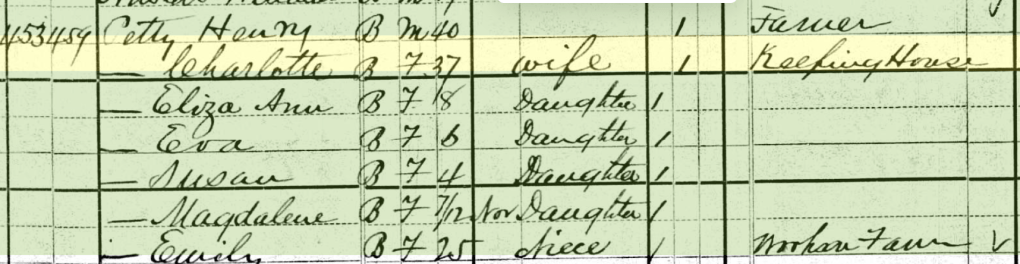 453 459 Petty Henry B M 40 1 Farmer
— Charlotte B F 37 wife 1 Keeping House
— Eliza Ann B F 18 Daughter 1
— Eva B F 6 Daughter 1
— Susan B F 4 Daughter 1
— Magdalene B F 7/12 Nov Daughter 1
— Emily B F 25 Niece 1 Work on Farm